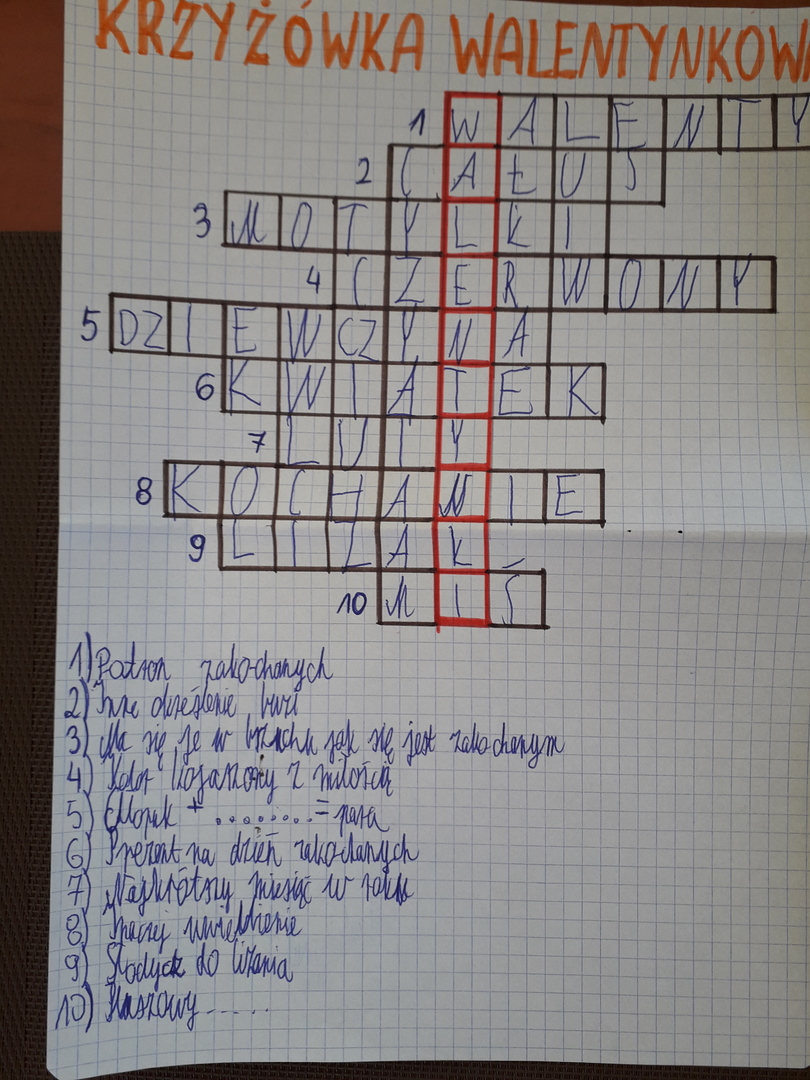 KRZYŻÓWKA WALENTYNKOWA
1 WALENTY
2 CAŁUS
3 MOTYLKI
4 CZERWONY
5 DZIEWCZYNA
6 KWIATEK
7 LUTY
8 KOCHANIE
9 LIZAK
10 MIŚ
1) Patron zakochanych
2) Inne określenie buzi
3) Ma się je w brzuchu jak się jest zakochanym
4) Kolor kojarzony z miłością
5) Chłopak + ......... = para
6) Prezent na dzień zakochanych
7) Najkrótszy miesiąc w roku
8) Inaczej uwielbienie
9) Słodycz do lizania
10) Pluszowy .....